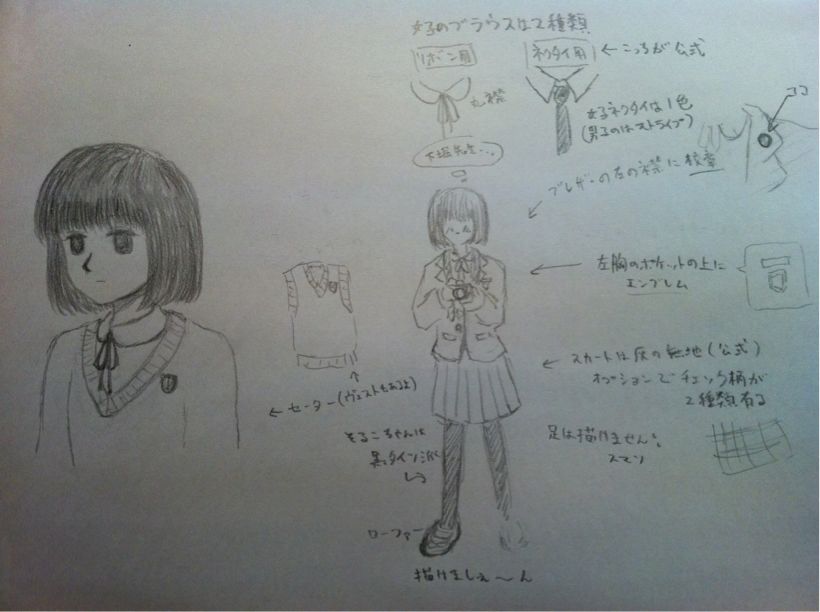 女子のブラウスは2種類
リボン用
ネクタイ用
←こっちが公式
丸襟
女子ネクタイは1色
(男子のはストライプ)
ココ
先生…
ブレザーの左の襟に校章
左胸のポケットの上に
エンブレム
スカートは灰の無地(公式)
オプションでチェック柄が
2種類有る
セーター(ヴェストもあるよ)
そるころちゃんは
黒タイツ派
足は描けません。
スマソ
ローファー
描けましぇ〜ん